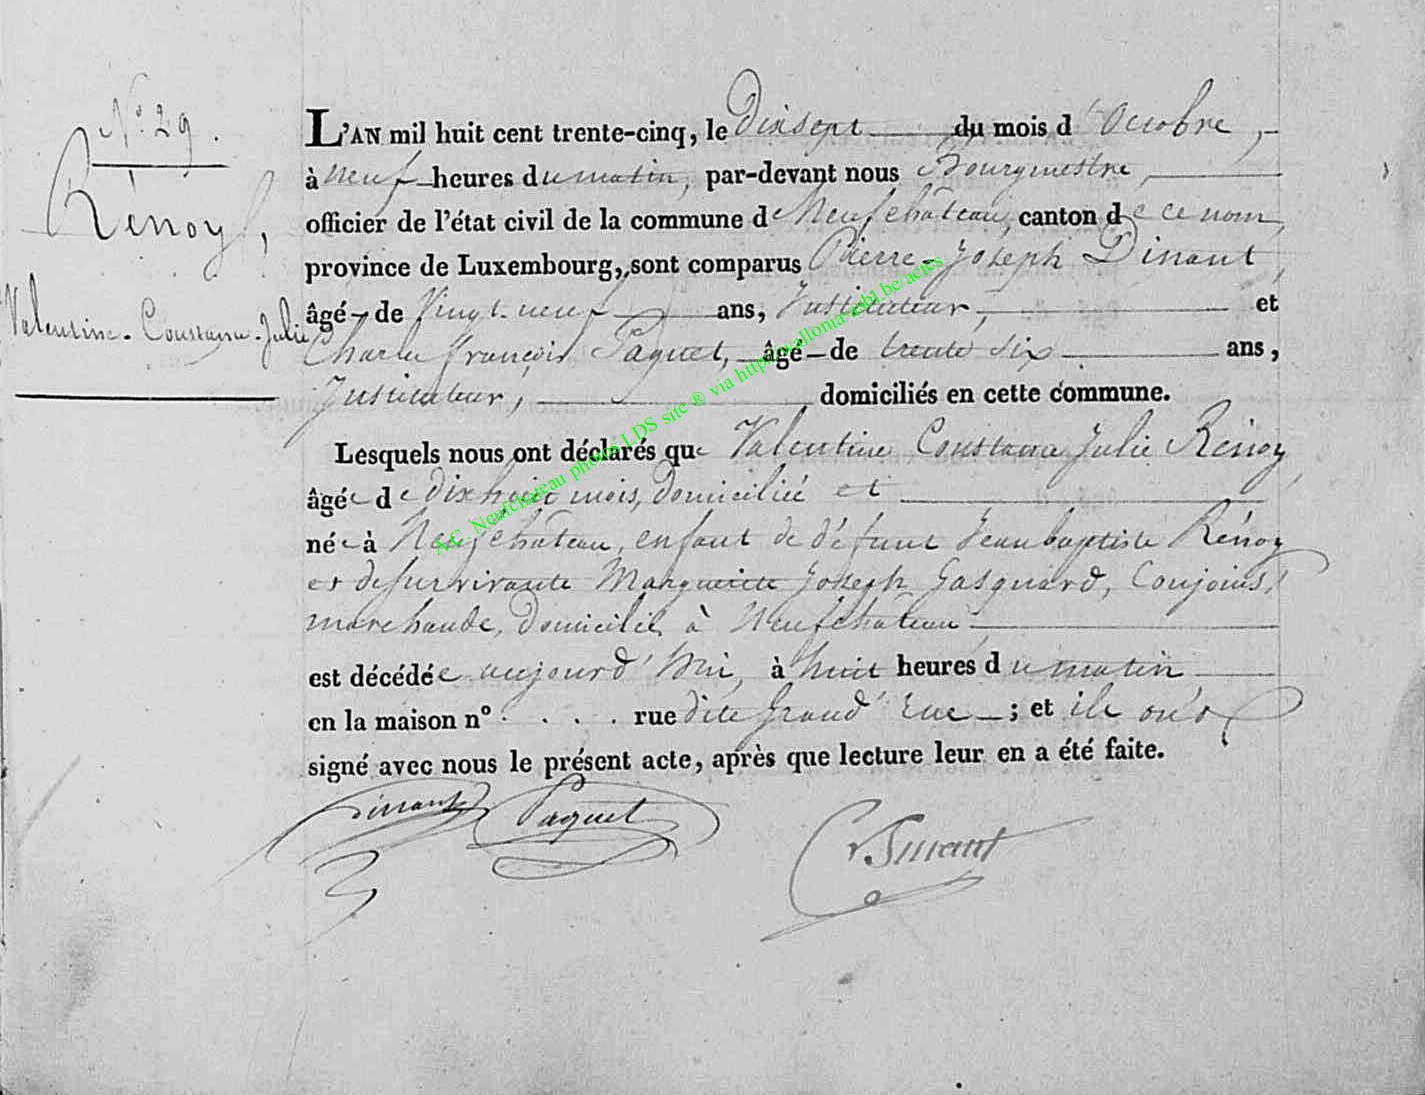 N.° 29.
Rénoy,
Valentine-Constance-Julie
L'AN mil huit cent trente-cinq, le Dixsept du mois d'Octobre,
à neuf heures du matin, par-devant nous Bourgmestre,
officier de l'état civil de la commune de Neufchâteau, canton de ce nom,
province de Luxembourg, sont comparus Pierre-Joseph Dinant,
âgé de Vingt-neuf ans, Instituteur, et
Charles françois Paquet, âgé de trente six ans,
Instituteur, domiciliés en cette commune.
Lesquels nous ont déclarés que Valentine Constance Julie Rénoy,
âgée de dixhuit mois, Domiciliée et
née à Neufchâteau, enfant de défunt Jeanbaptiste Rénoy
et de survivante Marguerite Joseph Gasquard, Conjoins,
marchande, Domiciliée à Neufchâteau
est décédée aujourd'hui, à huit heures du matin
en la maison n° . . . . rue dite Grand'rue ; et ils ont
signé avec nous le présent acte, après que lecture leur en a été faite.
Dinant Paquet
A.C. Neufchateau photos LDS site ® via http://wallonia-asbl.be/actes